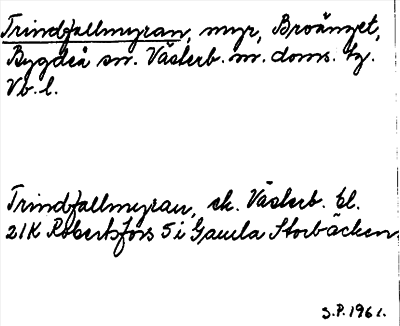 Trindfallmyran, myr, Broänget,
Bygdeå sn. Västerb. m. doms. tg.
Vb. l.
Trindfallmyran, ek. Västerb. bl.
21K Robertsfors 5 i Gamla Storbäcken
S.P. 1961.